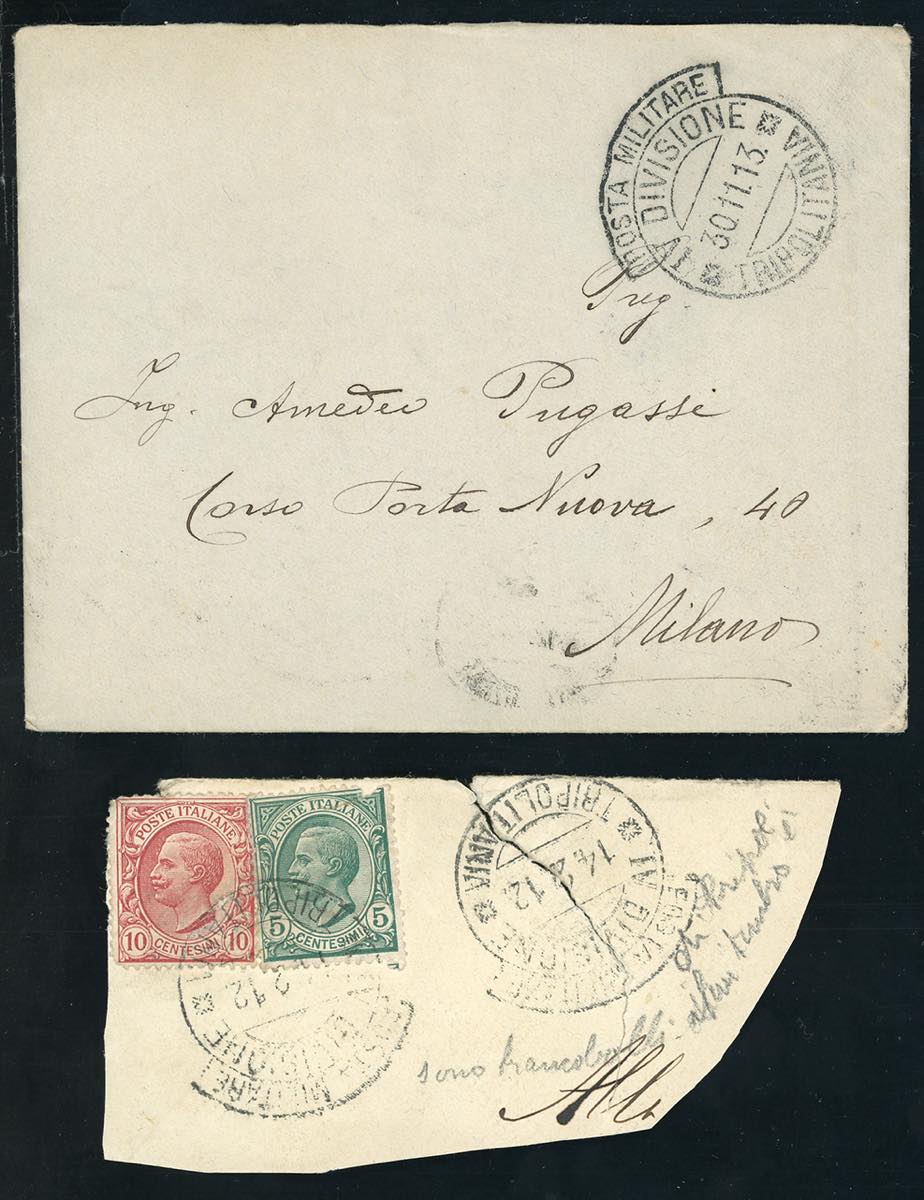 POSTA MILITARE
IV DIVISIONE
30.11.13.
TRIPOLITANIA
Preg.
Ing. Amedeo Pugassi
Corso Porta Nuova, 40
Milano
POSTE ITALIANE
10 CENTESIMI 10
POSTE ITALIANE
5 CENTESIMI 5
TRIPOLITANIA
14.2.12.
IV DIVISIONE
MILITARE
2.12.
DIVISIONE
POSTA MILITARE
sono francobolli
di
All